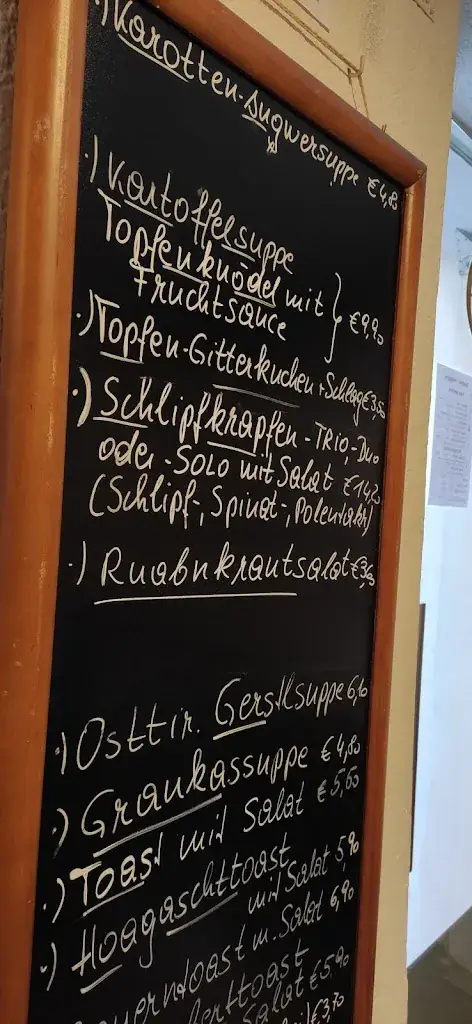 ·) Karotten-Ingwersuppe €4,80
·) Kartoffelsuppe
Topfenknödel mit
Fruchtsauce } €9,90
·) Topfen-Gitterkuchen + Schlag €3,50
·) Schlipfkrapfen-TRIO,-Duo
oder -SOLO mit Salat €14,20
(Schlipf-, Spinat-, Polentakr)
·) Ruabnkrautsalat €3,60
·) Osttir. Gerstlsuppe 6,10
·) Graukassuppe €4,80
·) Toast mit Salat €5,60
·) Hoagaschttoast
mit Salat 5,90
m. Salat 6,90
Salat €5,90
€3,70